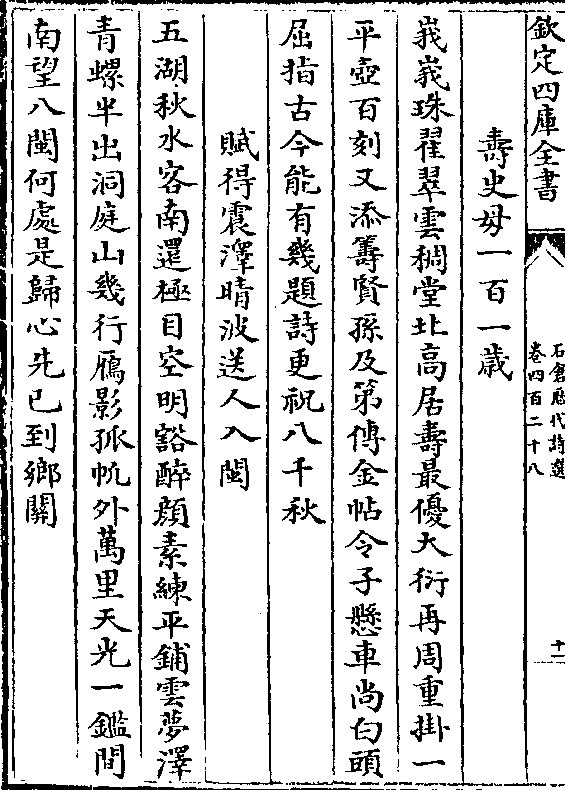 欽定四庫全書
石倉歷代詩選
卷四百二十八
十一
壽史母一百一歲
峩峩珠翟翠雲稠堂北高居壽最優大衍再周重掛一
平壺百刻又添籌賢孫及第傳金帖令子懸車尚白頭
屈指古今能有幾題詩更祝八千秋
賦得震澤晴波送人入閩
五湖秋水客南還極目空明豁醉顔素練平鋪雲夢澤
青螺半出洞庭山幾行鴈影孤帆外萬里天光一鑑間
南望八閩何處是歸心先已到鄉關